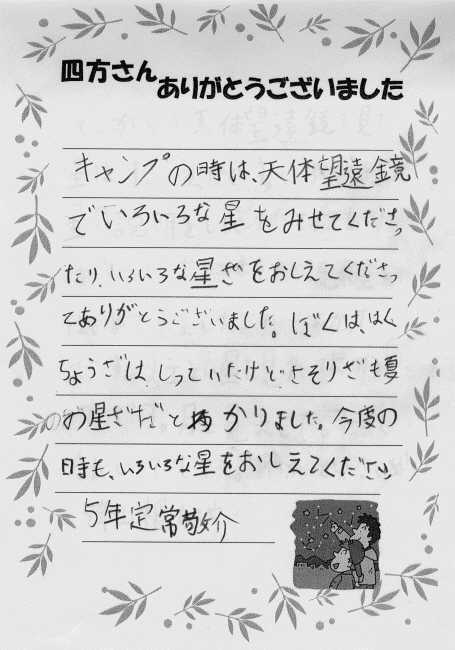 四方さん
ありがとうございました
キャンプの時は、天体望遠鏡
でいろいろな星をみせてくださっ
たり、いろいろな星ざをおしえてくださっ
てありがとうございました。ぼくは、はく
ちょうざはしっていたけど、さそりざも夏
の星ざだと分かりました。今度の
時も、いろいろな星をおしえてください
5年定常敬介